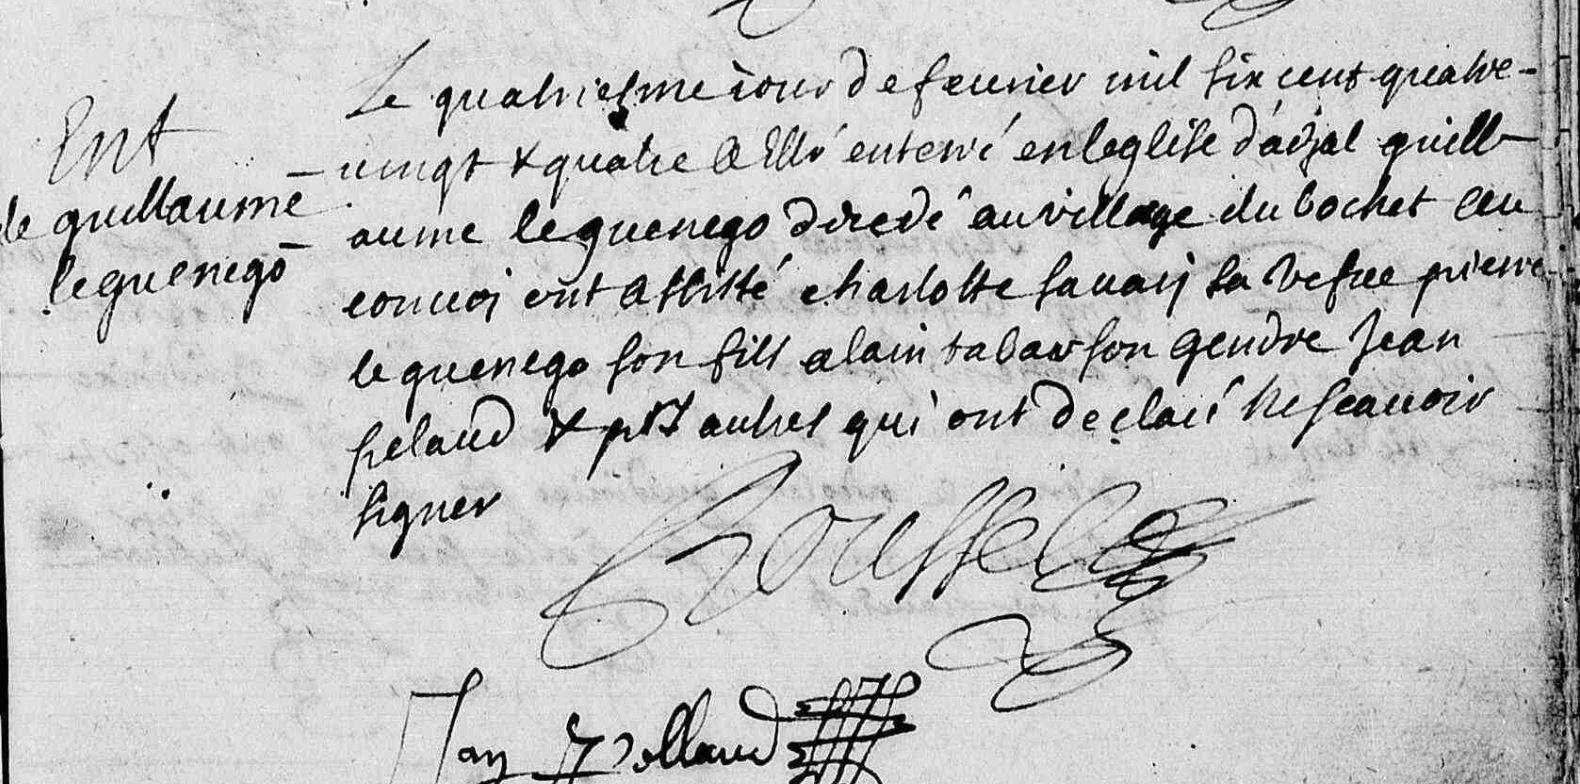 Ent
de guillaume
le guenego
Le quatriesme iour de feurier mil six cent quatre-
uingt & quatre a esté enterré en leglise d'arzal guill-
aume le guenego decedé au village du bochet au
conuoi ont assisté charlotte sauary sa vefue pierre
le guenego son fils alain tabar son gendre Jean
& pls autres qui ont declaré ne scauoir
signer
Roussel
Jan Rolland